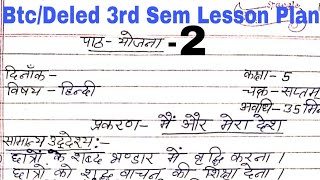 Btc/Deled 3rd Sem Lesson Plan
पाठ-योजना -2
दिनाँक- कक्षा - 5
विषय - हिन्दी चक्र- सप्तम
अवधि- 35 मि
प्रकरण- मैं और मेरा देश
सामान्य उद्देश्य:-
छात्रों के शब्द भण्डार में वृद्धि करना।
छात्रों को शुद्ध वाचन की शिक्षा देना।